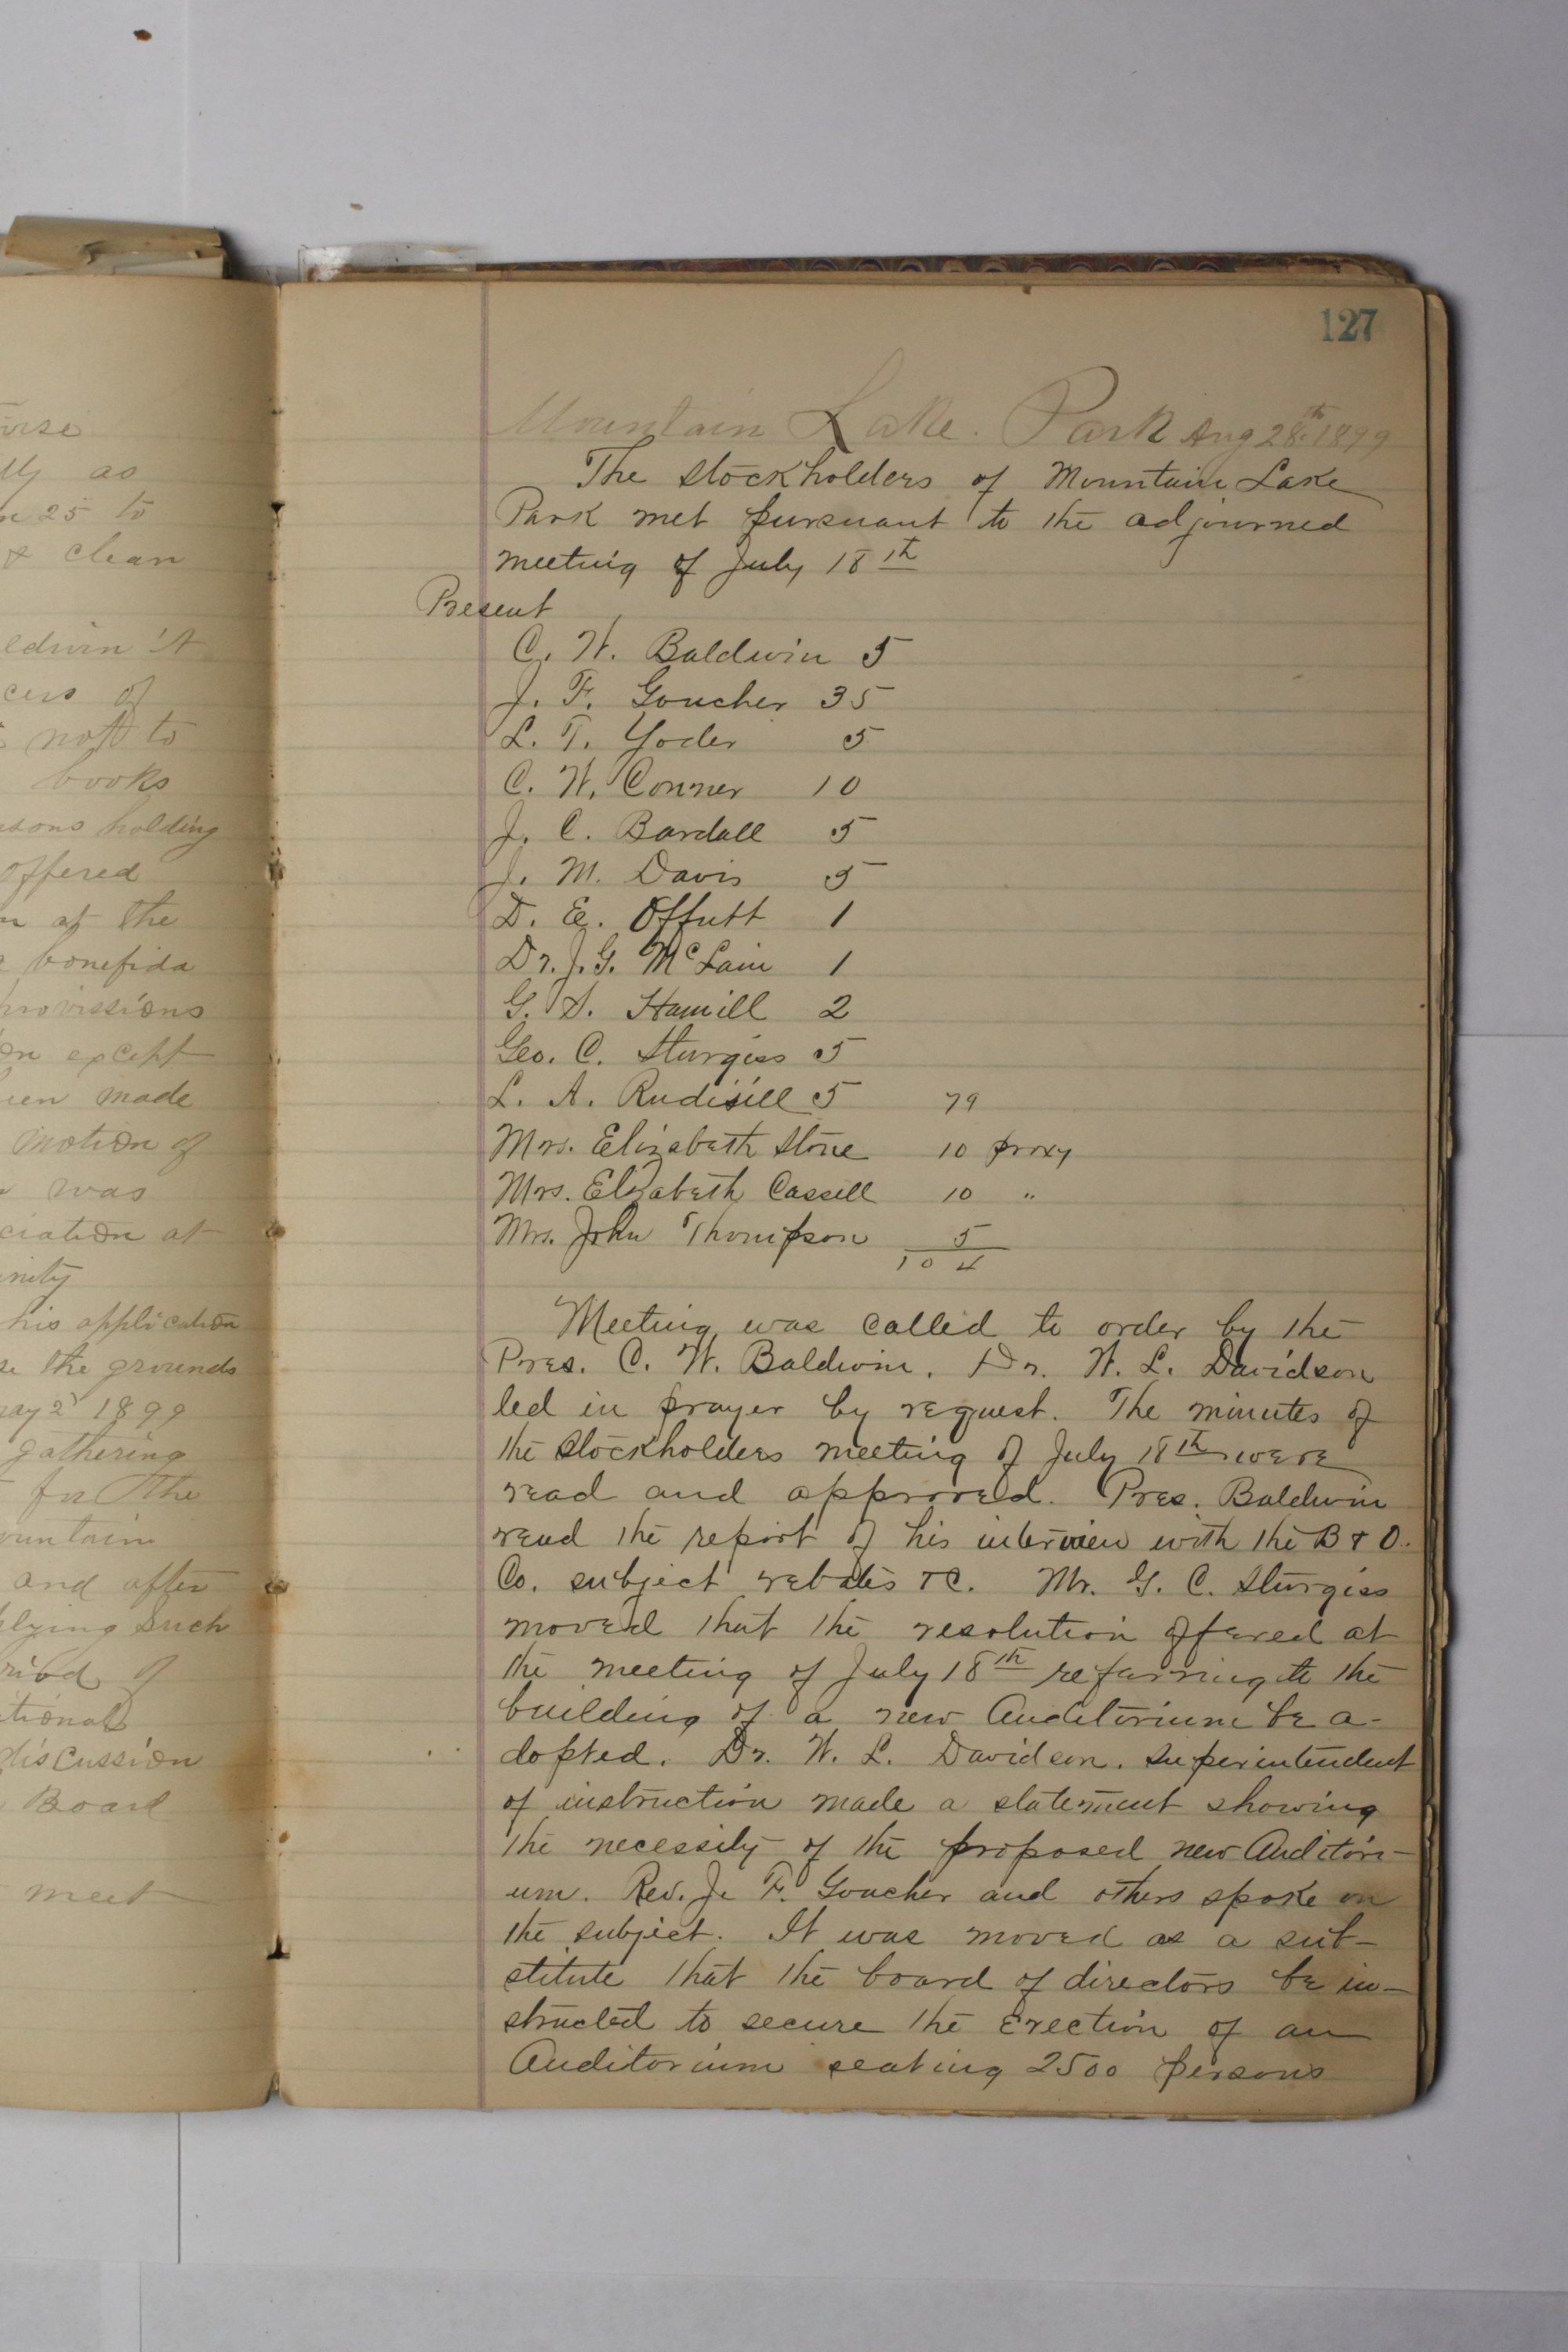 urse
lly as
n 25 to
& clean
aldwin 't
cers of
not to
books
sons holding
offered
n at the
bonefida
provissions
on except
een made
motion of
was
ciation at
nity
his application
se the grounds
may 2 1899
gathering
for the
ountain
and after
plying such
riod of
itional
discussion
Board
meet
127
Mountain Lake. Park Aug 28th 1899
The stockholders of Mountain Lake
Park met pursuant to the adjourned
meeting of July 18th
Present
C. W. Baldwin 5
J. F. Goucher 35
L. T. Yoder 5
C. W. Conner 10
J. C. Bardall 5
J. M. Davis 5
D. E. Offutt 1
Dr. J. G. McLain 1
G. S. Hamill 2
Geo. C. Sturgiss 5
L. A. Rudisill 5 79
Mrs. Elizabeth Stone 10 proxy
Mrs. Elizabeth Cassell 10 "
Mrs. John Thompson 5
104
Meeting was called to order by the
Pres. C. W. Baldwin. Dr. W. L. Davidson
led in prayer by request. The minutes of
the stockholders meeting of July 18th were
read and approved. Pres. Baldwin
read the report of his interview with the B & O.
Co. subject rebates &c. Mr. G. C. Sturgiss
moved that the resolution offered at
the meeting of July 18th referring to the
building of a new Auditorium be a-
dopted. Dr. W. L. Davidson. Superintendent
of instruction made a statement showing
the necessity of the proposed new Auditori-
um. Rev. J. F. Goucher and others spoke on
the subject. It was moved as a sub-
stitute that the board of directors be in-
structed to secure the erection of an
Auditorium seating 2500 persons